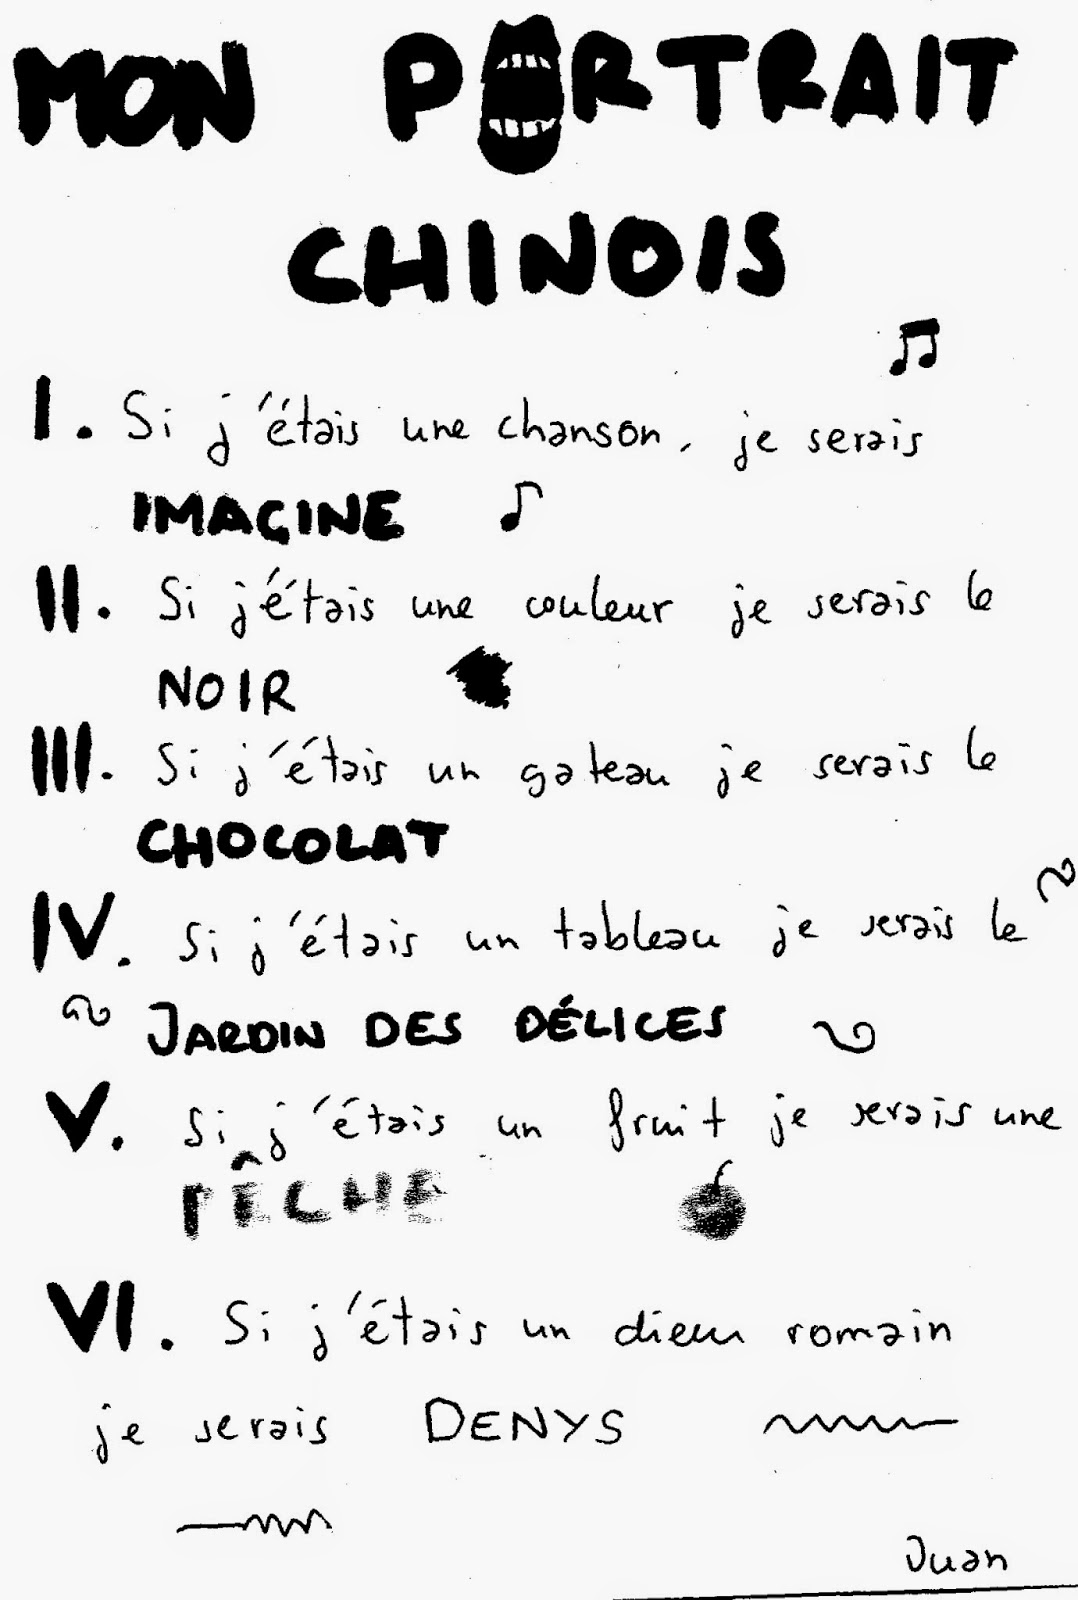 MON PORTRAIT
CHINOIS
I. Si j'étais une chanson, je serais
IMAGINE
II. Si j'étais une couleur je serais le
NOIR
III. Si j'étais un gateau je serais le
CHOCOLAT
IV. Si j'étais un tableau je serais le
JARDIN DES DÉLICES
V. Si j'étais un fruit je serais une
PÊCHE
VI. Si j'étais un dieu romain
je serais DENYS
Juan